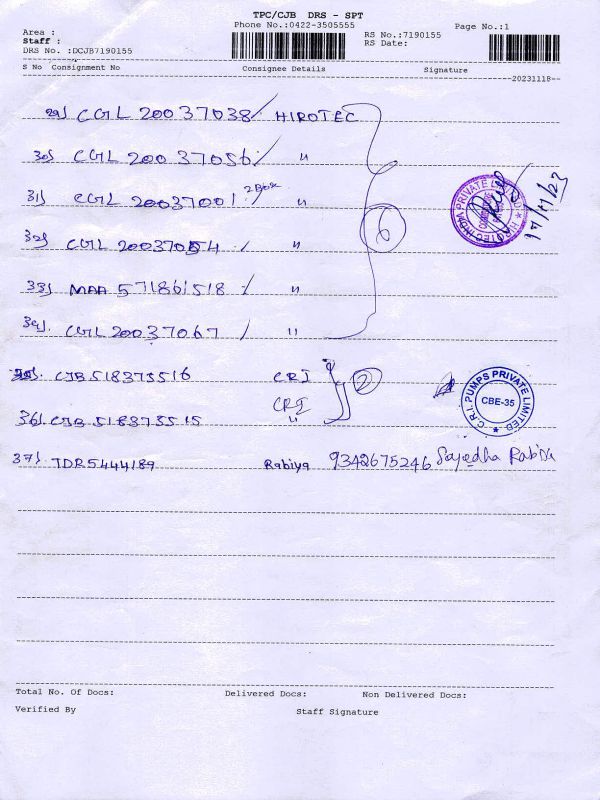 TPC/CJB DRS - SPT
Phone No.:0422-3505555
Page No.:1
Area :
Staff :
DRS No. :DCJB7190155
RS No.:7190155
RS Date:
S No Consignment No Consignee Details Signature
20231118
29) CGL 20037038 / HIROTEC
30) CGL 20037056 / "
31) CGL 20037001 / 2 Box "
32) CGL 20037054 / "
6
HIROTEC INDIA PRIVATE LIMITED
17/11/23
33) MAA 571861518 / "
34) CGL 20037067 / "
35) CJB 518375516 CRI
2
C.R.I. PUMPS PRIVATE LIMITED
CBE-35
CRI
36) CJB 518375515 "
37) TDR5444189 Rabiya 9342675246 Sajedha Rabiya
Total No. Of Docs: Delivered Docs: Non Delivered Docs:
Verified By Staff Signature